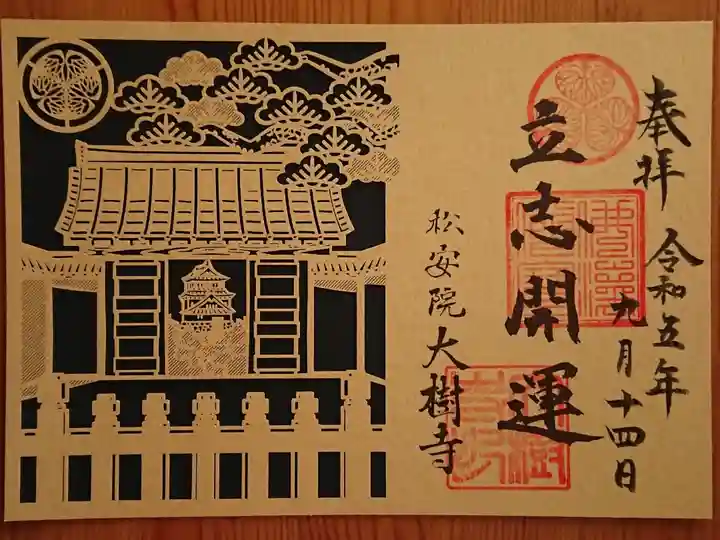 奉拝
令和五年
九月十四日
立志開運
松安院大樹寺